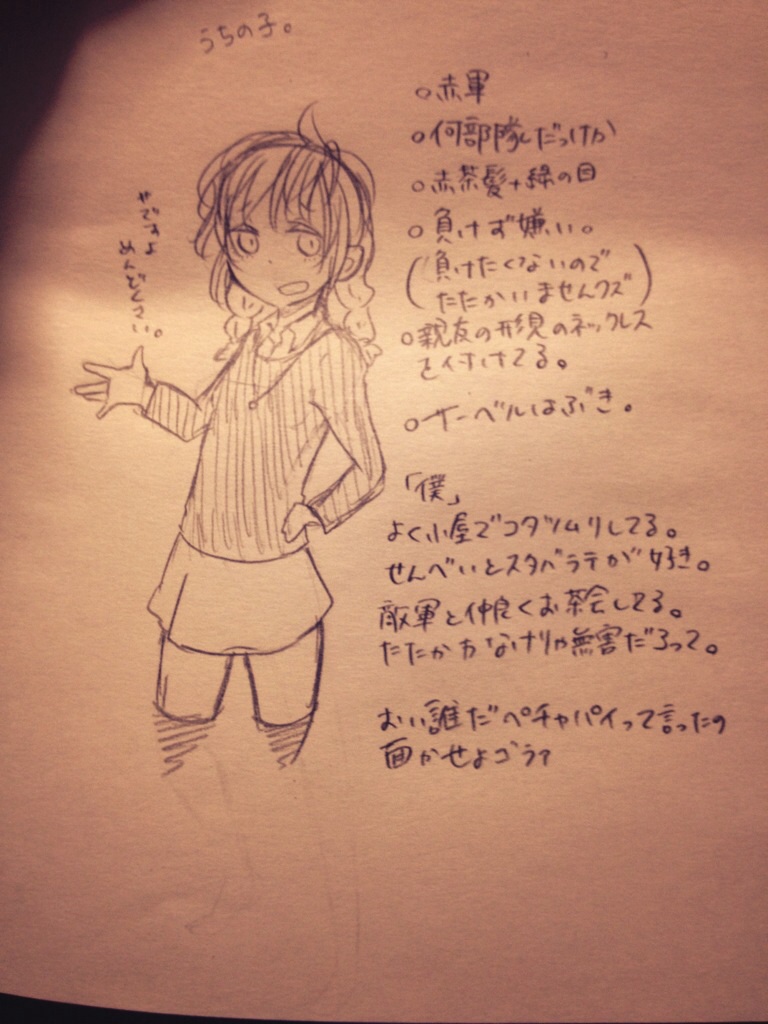 うちの子。
○赤軍
○何部隊だっけか
○赤茶髪+緑の目
○負けず嫌い。
(負けたくないので
たたかいませんクズ)
○親友の形見のネックレス
を付けてる。
○サーベルはぶき。
やですよ
めんどくさい。
「僕」
よく小屋でコタツムリしてる。
せんべいとスタバラテが好き。
敵軍と仲良くお茶会してる。
たたかわなけりゃ無害だろって。
おい誰だペチャパイって言ったの
面かせよゴラァ